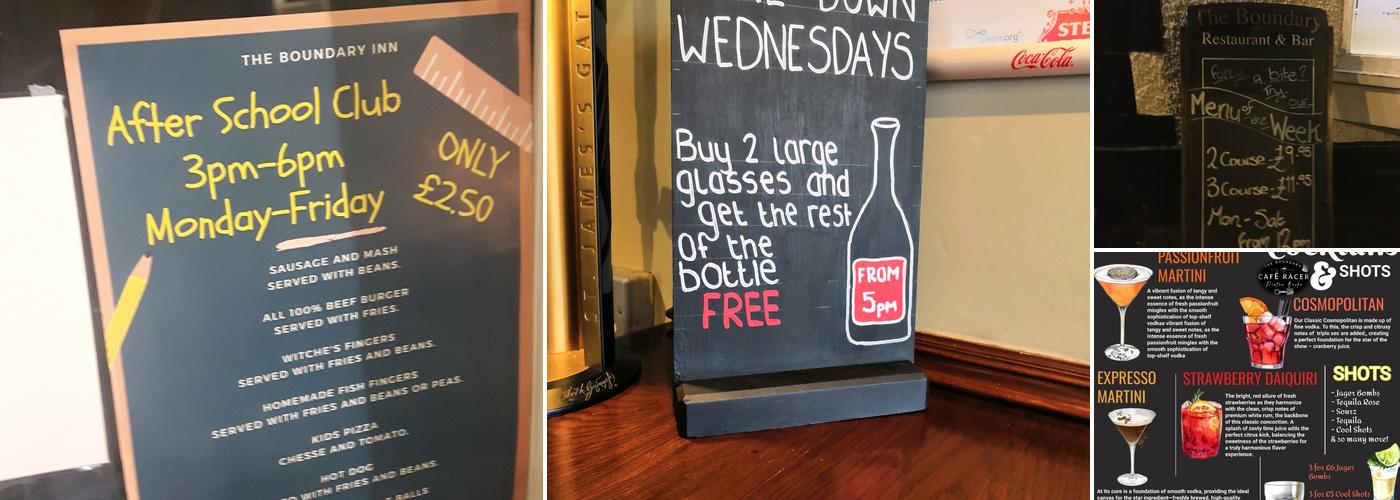 THE BOUNDARY INN
After School Club
3pm-6pm
Monday-Friday
ONLY
£2.50
SAUSAGE AND MASH
SERVED WITH BEANS.
ALL 100% BEEF BURGER
SERVED WITH FRIES.
WITCHE'S FINGERS
SERVED WITH FRIES AND BEANS.
HOMEMADE FISH FINGERS
SERVED WITH FRIES AND BEANS OR PEAS.
KIDS PIZZA
CHESSE AND TOMATO.
HOT DOG
WITH FRIES AND BEANS.
BALLS
DOWN
WEDNESDAYS
Buy 2 large
glasses and
get the rest
Of the
bottle
FREE
FROM
5pm
JAMES'S GAT
water.org
STE
Coca-Cola
The Boundary
Restaurant & Bar
Fancy a bite?
Try
our
Menu of the
Week
2 Course - £9.95
3 Course - £11.95
Mon - Sat
From 12pm
PASSIONFRUIT
MARTINI
A vibrant fusion of tangy and
sweet notes, as the intense
essence of fresh passionfruit
mingles with the smooth
sophistication of top-shelf
vodka vibrant fusion of
tangy and sweet notes, as the
intense essence of fresh
passionfruit mingles with the
smooth sophistication of
top-shelf vodka
Cocktails
& SHOTS
THE BOUNDARY
CAFÉ RACER
COSMOPOLITAN
Our Classic Cosmopolitan is made up of
fine vodka. To this, the crisp and citrusy
notes of triple sec are added,, creating
a perfect foundation for the star of the
show – cranberry juice.
EXPRESSO
MARTINI
STRAWBERRY DAIQUIRI
The bright, red allure of fresh
strawberries as they harmonize
with the clean, crisp notes of
premium white rum, the backbone
of this classic concoction. A
splash of zesty lime juice adds the
perfect citrus kick, balancing the
sweetness of the strawberries for
a truly harmonious flavor
experience.
SHOTS
- Jager Bombs
- Tequila Rose
- Sourz
- Tequila
- Cool Shots
& so many more!
3 for £6 Jager
Bombs
3 for £5 Cool Shots
At its core is a foundation of smooth vodka, providing the ideal
canvas for the star ingredient—freshly brewed, high-quality